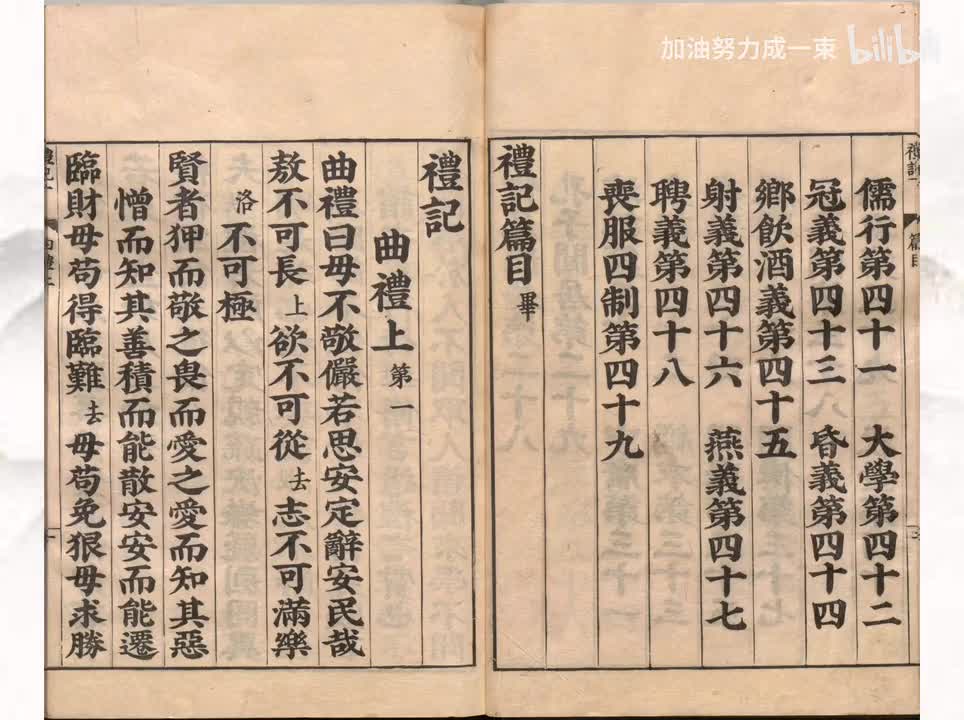 加油努力成一束 bilibili
儒行第四十一 大學第四十二
冠義第四十三 昏義第四十四
鄉飲酒義第四十五
射義第四十六 燕義第四十七
聘義第四十八
喪服四制第四十九
禮記篇目 畢
禮記
曲禮上 第一
曲禮曰毋不敬儼若思安定辭安民哉
敖不可長 上 欲不可從 去 志不可滿樂
洛 不可極
賢者狎而敬之畏而愛之愛而知其惡
憎而知其善積而能散安安而能遷
臨財毋苟得臨難 去 毋苟免狠毋求勝